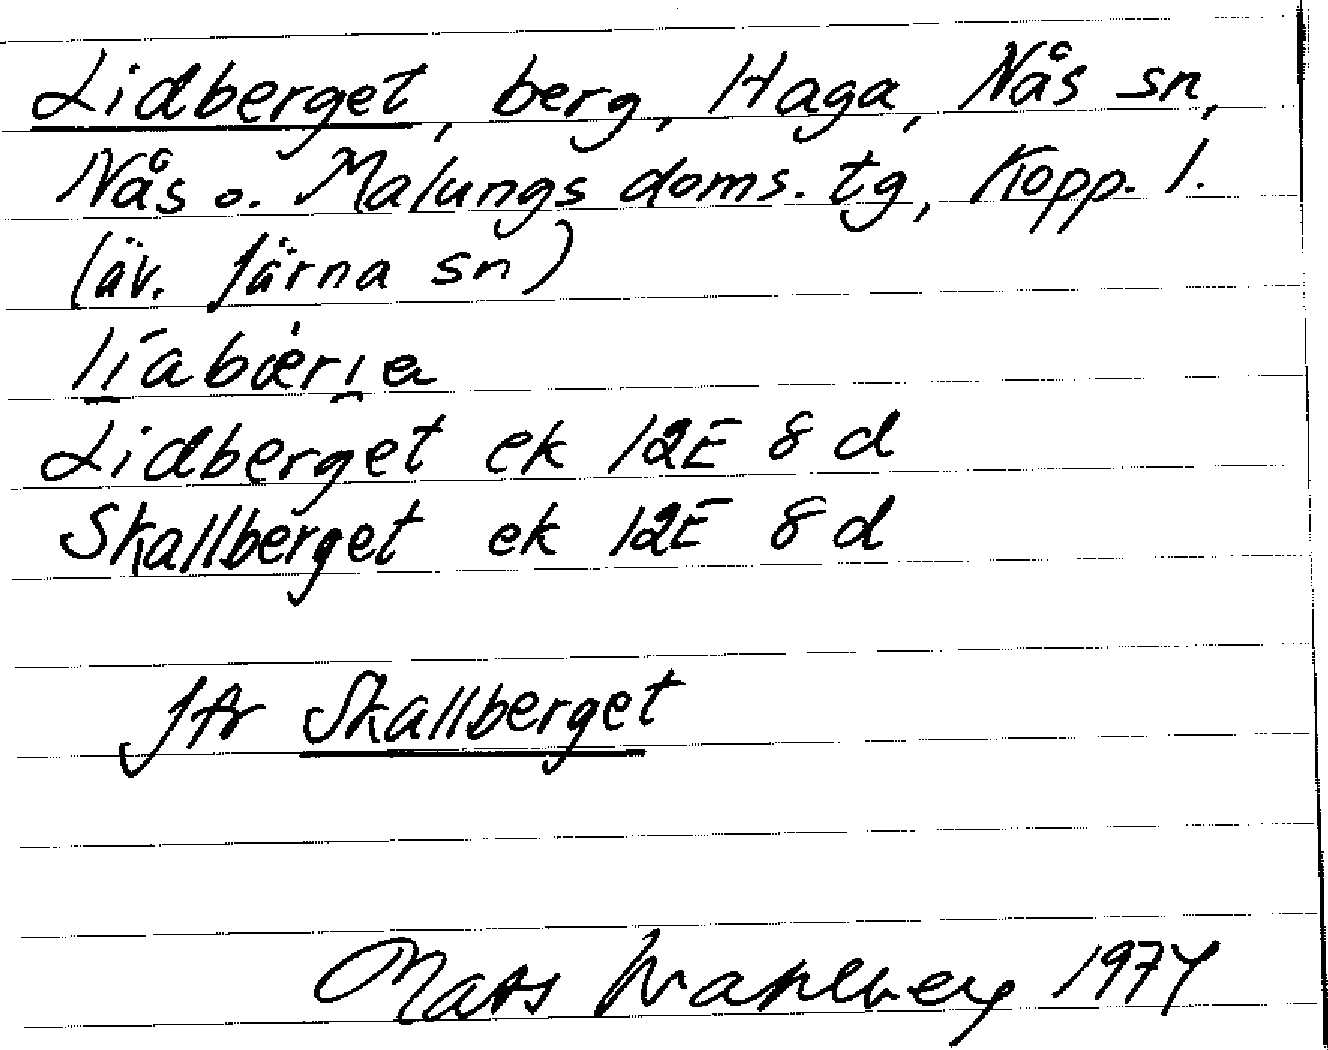 Lidberget, berg, Haga, Nås sn,
Nås o. Malungs doms. tg, Kopp. l.
(äv. Järna sn)
Lidberget ek 12E 8 d
Skallberget ek 12E 8 d
Jfr Skallberget
Mats Wahlberg 1974